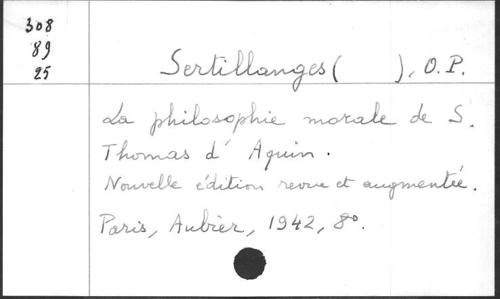 308
89
25
Sertillanges ( ), O.P.
La philosophie morale de S.
Thomas d' Aquin.
Nouvelle édition revue et augmentée.
Paris, Aubier, 1942, 8º.